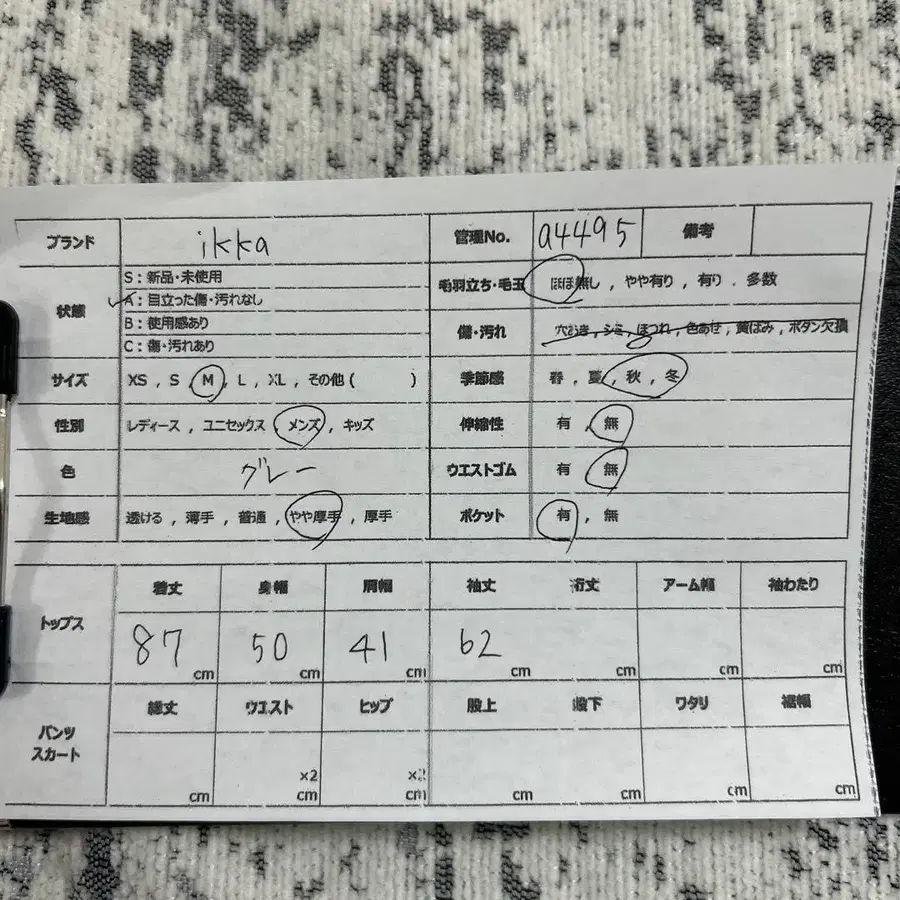 ブランド ikka 管理No. a4495 備考
状態
S：新品・未使用
A：目立った傷・汚れなし
B：使用感あり
C：傷・汚れあり
毛羽立ち・毛玉 ほぼ無し，やや有り，有り．多数
傷・汚れ 穴あき，シミ，ほつれ，色あせ，黄ばみ，ボタン欠損
サイズ XS，S，M，L，XL，その他（ ） 季節感 春，夏，秋，冬
性別 レディース，ユニセックス，メンズ，キッズ 伸縮性 有，無
色 グレー ウエストゴム 有 無
生地感 透ける，薄手，普通，やや厚手，厚手 ポケット 有，無
着丈 身幅 肩幅 袖丈 裄丈 アーム幅 袖わたり
トップス
87 cm 50 cm 41 cm 62 cm cm cm cm
総丈 ウエスト ヒップ 股上 股下 ワタリ 裾幅
パンツ
スカート
×2 ×2
cm cm cm cm cm cm cm